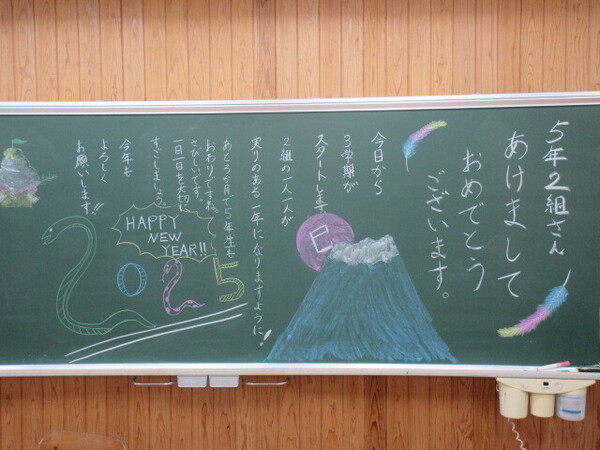 5年2組さん
あけまして
おめでとう
ございます。
今日から
3学期が
スタートします
2組の一人一人が
実りのある一年になりますように!
あと3か月で5年生も
おわりですね。
さびしいです。
一日一日を大切に
すごしましょう
今年も
よろしく
お願いします!!
巳
HAPPY
NEW
YEAR!!
2025